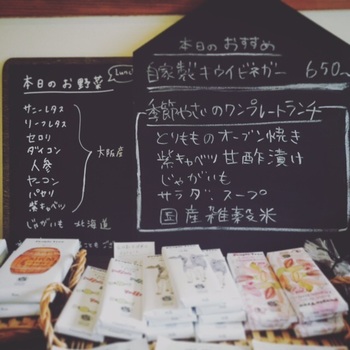 本日のお野菜
Lunch
サニーレタス
リーフレタス
セロリ
ダイコン
人参
ヤーコン
パセリ
紫キャベツ
大阪産
じゃがいも 北海道
本日のおすすめ
自家製キウイビネガー 650
季節やさいのワンプレートランチ
とりもものオーブン焼き
紫キャベツ甘酢漬け
じゃがいも
サラダ スープ
国産雑穀米